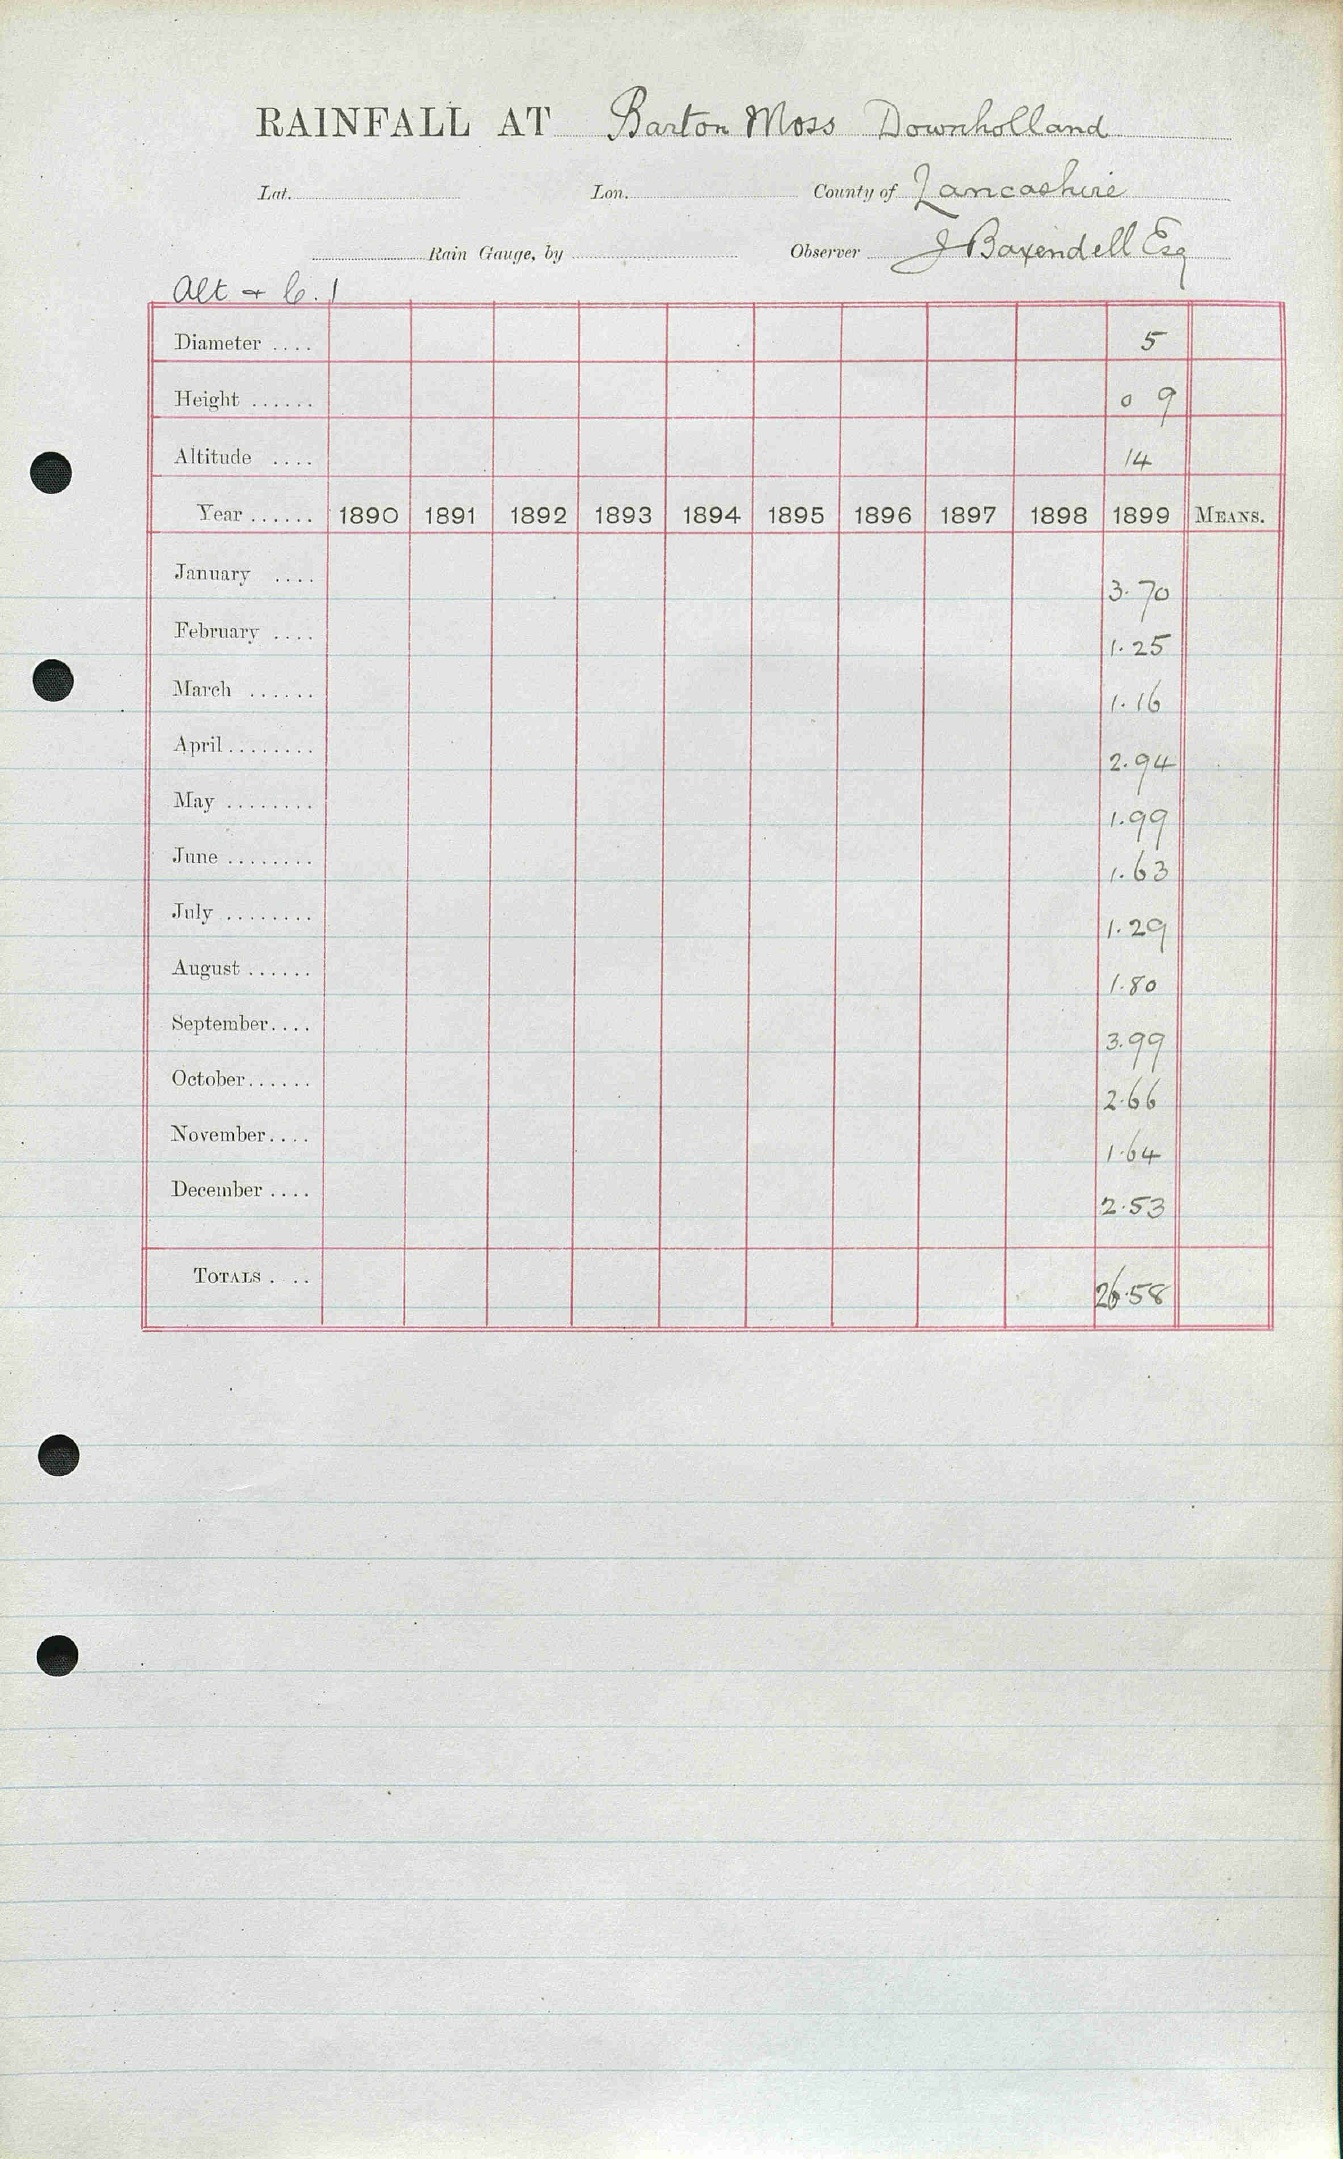 RAINFALL AT Barton Moss Downholland
Lat. Lon. County of Lancashire
Rain Gauge, by Observer J Baxendell Esq
Alt + C. 1
Diameter .... 5
Height ...... 0 9
Altitude .... 14
Year ...... 1890 1891 1892 1893 1894 1895 1896 1897 1898 1899 MEANS.
January .... 3.70
February .... 1.25
March ...... 1.16
April ........ 2.94
May ........ 1.99
June ........ 1.63
July ........ 1.29
August ...... 1.80
September.... 3.99
October...... 2.66
November.... 1.64
December .... 2.53
TOTALS . .. 26.58